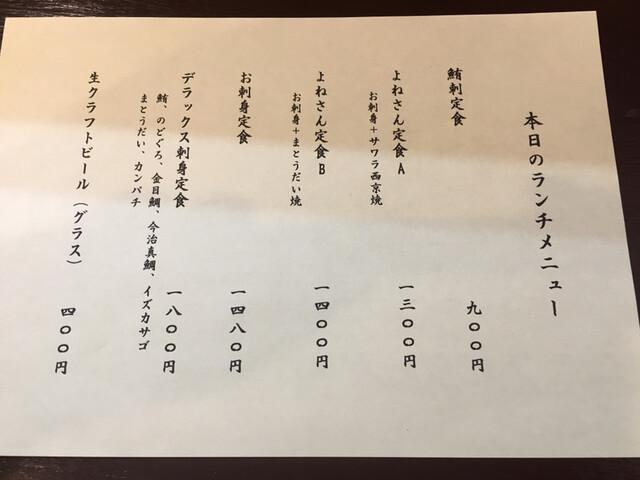 本日のランチメニュー
鮪刺定食 九〇〇円
よねさん定食A 一三〇〇円
お刺身+サワラ西京焼
よねさん定食B 一四〇〇円
お刺身+まとうだい焼
お刺身定食 一四八〇円
デラックス刺身定食 一八〇〇円
鮪、のどぐろ、金目鯛、今治真鯛、イズカサゴ
まとうだい、カンパチ
生クラフトビール(グラス) 四〇〇円